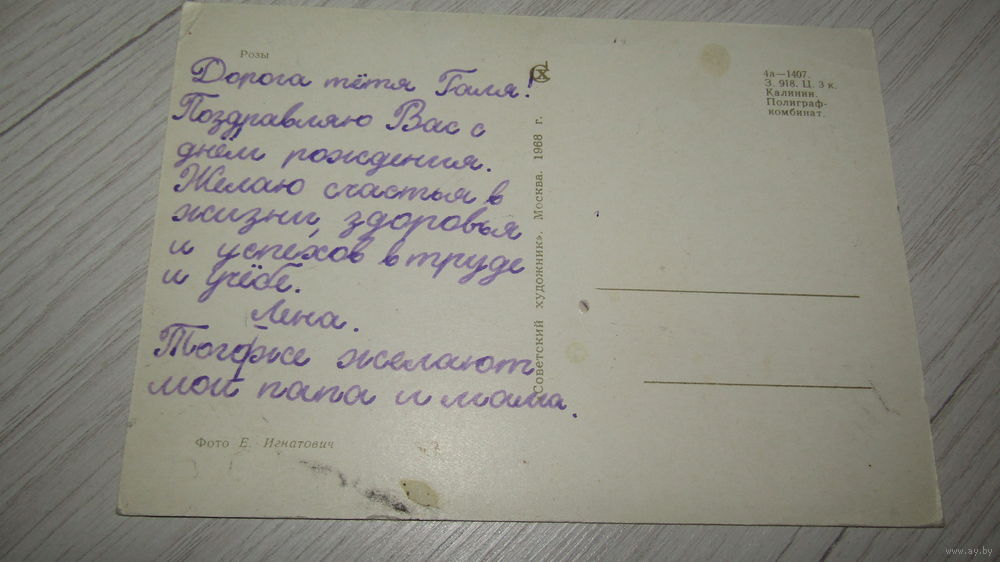 Розы
Дорога тётя Галя!
Поздравляю Вас с
днём рождения.
Желаю счастья в
жизни, здоровья
и успехов в труде
и учёбе.
Лена.
Тогоже желают
мои папа и мама.
Фото Е. Игнатович
Советский художник». Москва. 1968 г.
4а—1407.
З. 918. Ц. 3 к.
Калинин.
Полиграф-
комбинат.
www.ay.by